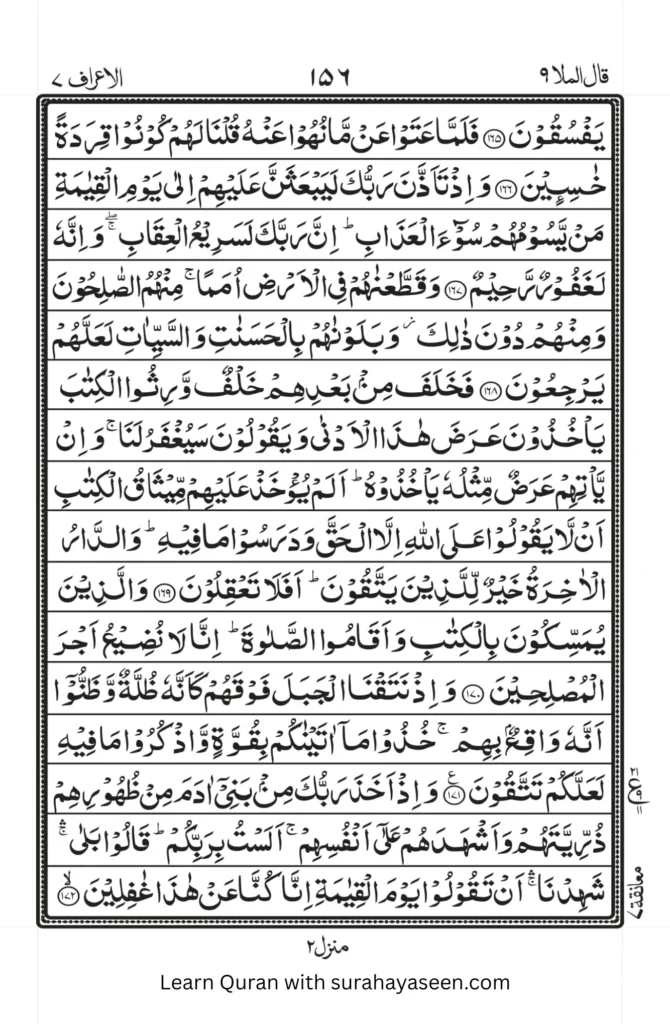 قال الملا ٩ ١٥٦ الاعراف ٧
يَفْسُقُوْنَ ﴿١٦٥﴾ فَلَمَّا عَتَوْا عَنْ مَّا نُهُوْا عَنْهُ قُلْنَا لَهُمْ كُوْنُوْا قِرَدَةً
خٰسِـِٕيْنَ ﴿١٦٦﴾ وَاِذْ تَاَذَّنَ رَبُّكَ لَيَبْعَثَنَّ عَلَيْهِمْ اِلٰى يَوْمِ الْقِيٰمَةِ
مَنْ يَّسُوْمُهُمْ سُوْٓءَ الْعَذَابِ ؕ اِنَّ رَبَّكَ لَسَرِيْعُ الْعِقَابِ ۚۖ وَاِنَّهٗ
لَغَفُوْرٌ رَّحِيْمٌ ﴿١٦٧﴾ وَقَطَّعْنٰهُمْ فِى الْاَرْضِ اُمَمًا ۚ مِنْهُمُ الصّٰلِحُوْنَ
وَمِنْهُمْ دُوْنَ ذٰلِكَ ؗ وَبَلَوْنٰهُمْ بِالْحَسَنٰتِ وَالسَّيِّاٰتِ لَعَلَّهُمْ
يَرْجِعُوْنَ ﴿١٦٨﴾ فَخَلَفَ مِنْۢ بَعْدِهِمْ خَلْفٌ وَّرِثُوا الْكِتٰبَ
يَاْخُذُوْنَ عَرَضَ هٰذَا الْاَدْنٰى وَيَقُوْلُوْنَ سَيُغْفَرُ لَنَا ۚ وَاِنْ
يَّاْتِهِمْ عَرَضٌ مِّثْلُهٗ يَاْخُذُوْهُ ؕ اَلَمْ يُؤْخَذْ عَلَيْهِمْ مِّيْثَاقُ الْكِتٰبِ
اَنْ لَّا يَقُوْلُوْا عَلَى اللّٰهِ اِلَّا الْحَقَّ وَدَرَسُوْا مَا فِيْهِ ؕ وَالدَّارُ
الْاٰخِرَةُ خَيْرٌ لِّلَّذِيْنَ يَتَّقُوْنَ ؕ اَفَلَا تَعْقِلُوْنَ ﴿١٦٩﴾ وَالَّذِيْنَ
يُمَسِّكُوْنَ بِالْكِتٰبِ وَاَقَامُوا الصَّلٰوةَ ؕ اِنَّا لَا نُضِيْعُ اَجْرَ
الْمُصْلِحِيْنَ ﴿١٧٠﴾ وَاِذْ نَتَقْنَا الْجَبَلَ فَوْقَهُمْ كَاَنَّهٗ ظُلَّةٌ وَّظَنُّوْٓا
اَنَّهٗ وَاقِعٌۢ بِهِمْ ۚ خُذُوْا مَاۤ اٰتَيْنٰكُمْ بِقُوَّةٍ وَّاذْكُرُوْا مَا فِيْهِ
لَعَلَّكُمْ تَتَّقُوْنَ ﴿١٧١﴾ وَاِذْ اَخَذَ رَبُّكَ مِنْۢ بَنِىْۤ اٰدَمَ مِنْ ظُهُوْرِهِمْ
ذُرِّيَّتَهُمْ وَاَشْهَدَهُمْ عَلٰٓى اَنْفُسِهِمْ ۚ اَلَسْتُ بِرَبِّكُمْ ؕ قَالُوْا بَلٰى ۛۚ
شَهِدْنَا ۛۚ اَنْ تَقُوْلُوْا يَوْمَ الْقِيٰمَةِ اِنَّا كُنَّا عَنْ هٰذَا غٰفِلِيْنَ ﴿١٧٢﴾ۙ
معانقة ٧
منزل ٢
Learn Quran with surahayaseen.com